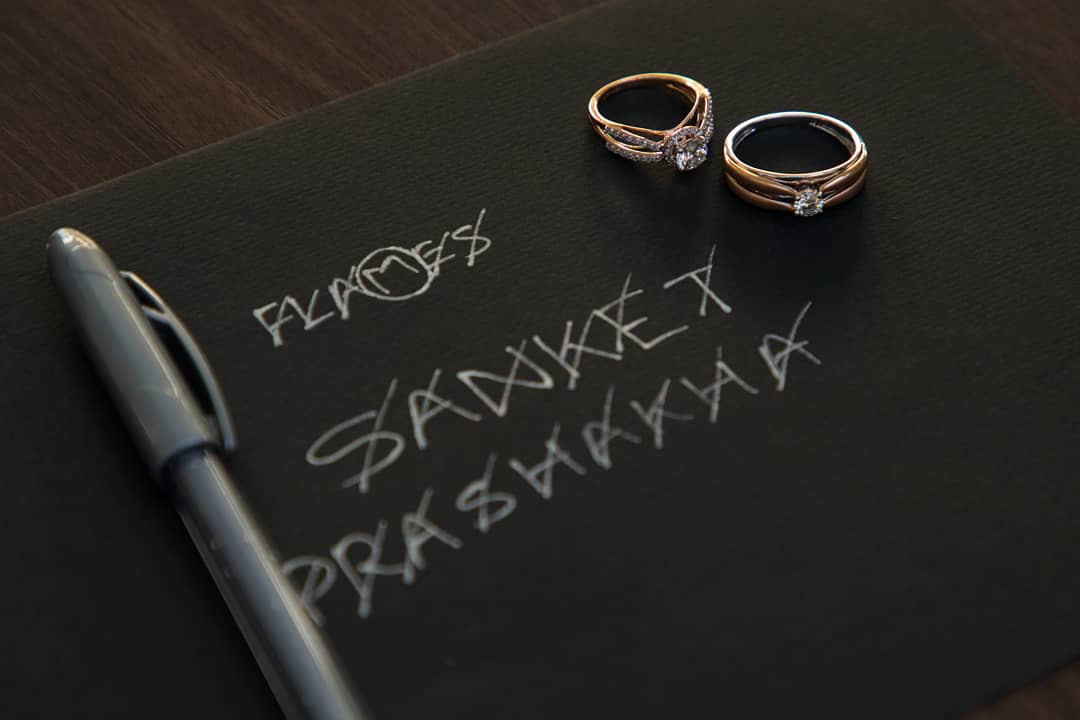 FLAMES
SANKET
PRASHAKHA